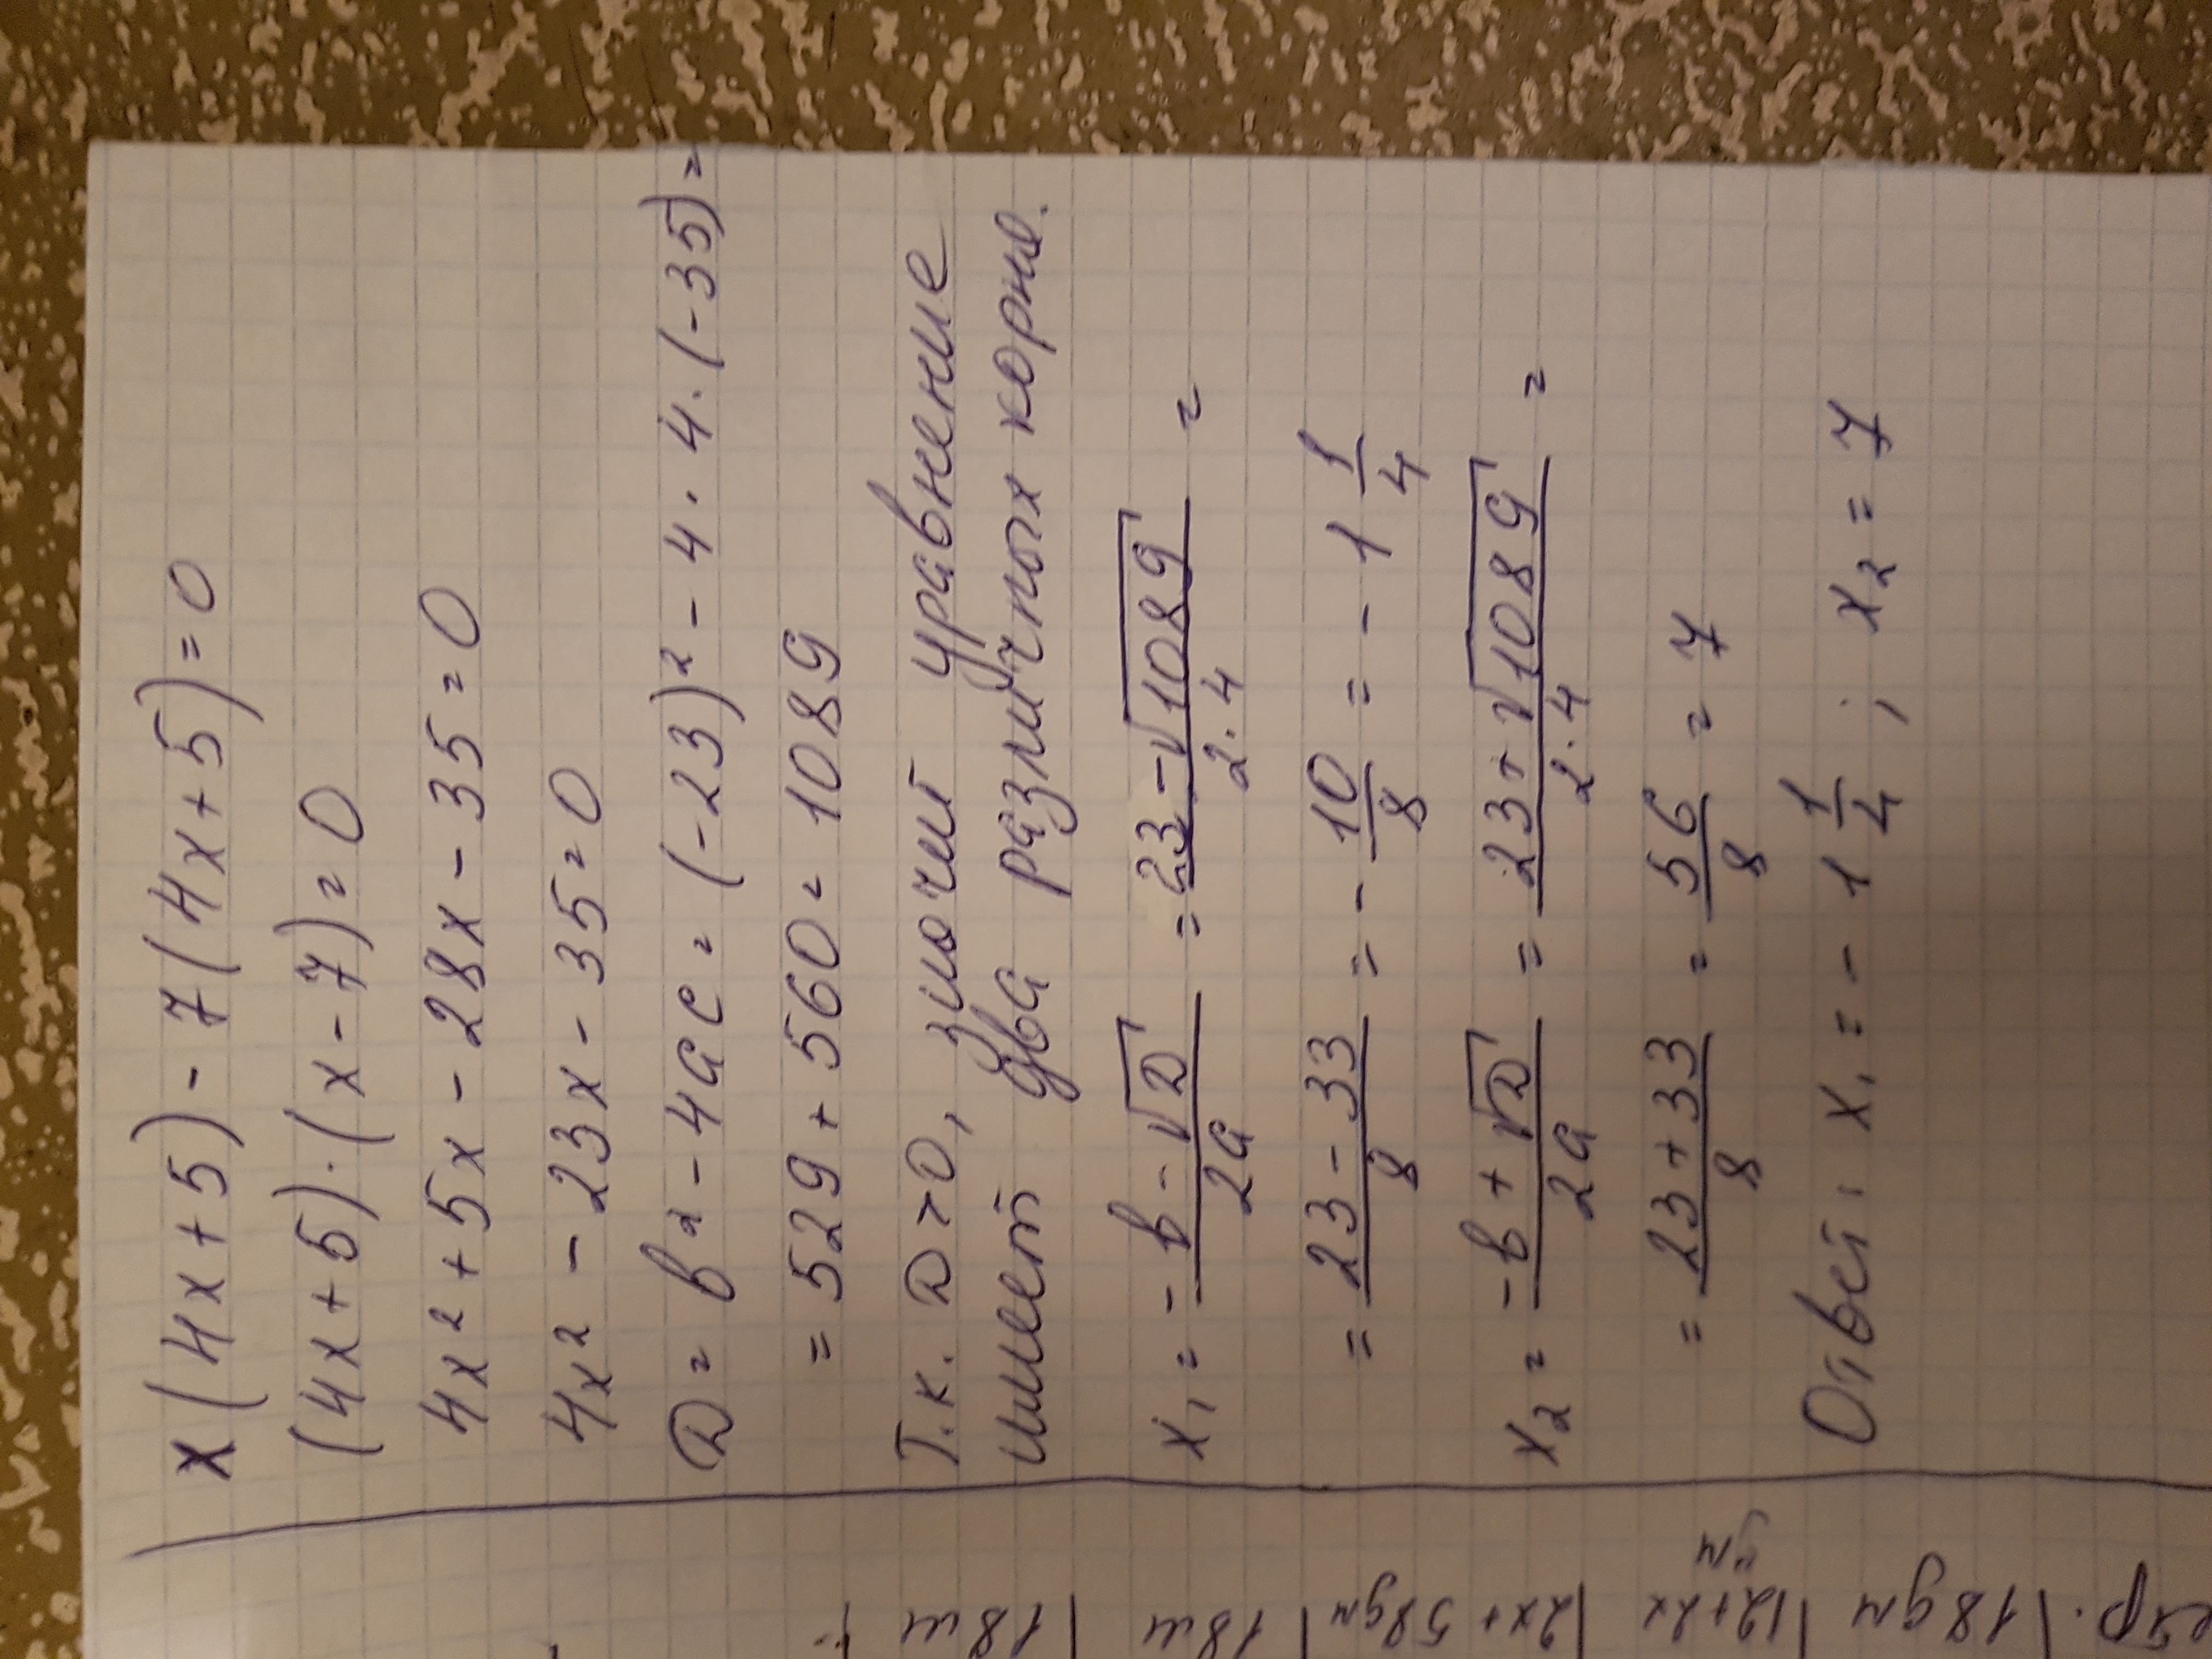 x(4x+5)-7(4x+5)=0
(4x+5)·(x-7)=0
4x²+5x-28x-35=0
4x²-23x-35=0
D=b²-4ac=(-23)²-4·4·(-35)=
=529+560=1089
Т.к. D>0, значит уравнение
имеет два различных корня.
x₁=(-b-√D)/2a=(23-√1089)/(2·4)=
=(23-33)/8=-10/8=-1 1/4
x₂=(-b+√D)/2a=(23+√1089)/(2·4)=
=(23+33)/8=56/8=7
Ответ: x₁=-1 1/4; x₂=7
18дм
12+2x
2x+58дм
18м
18м